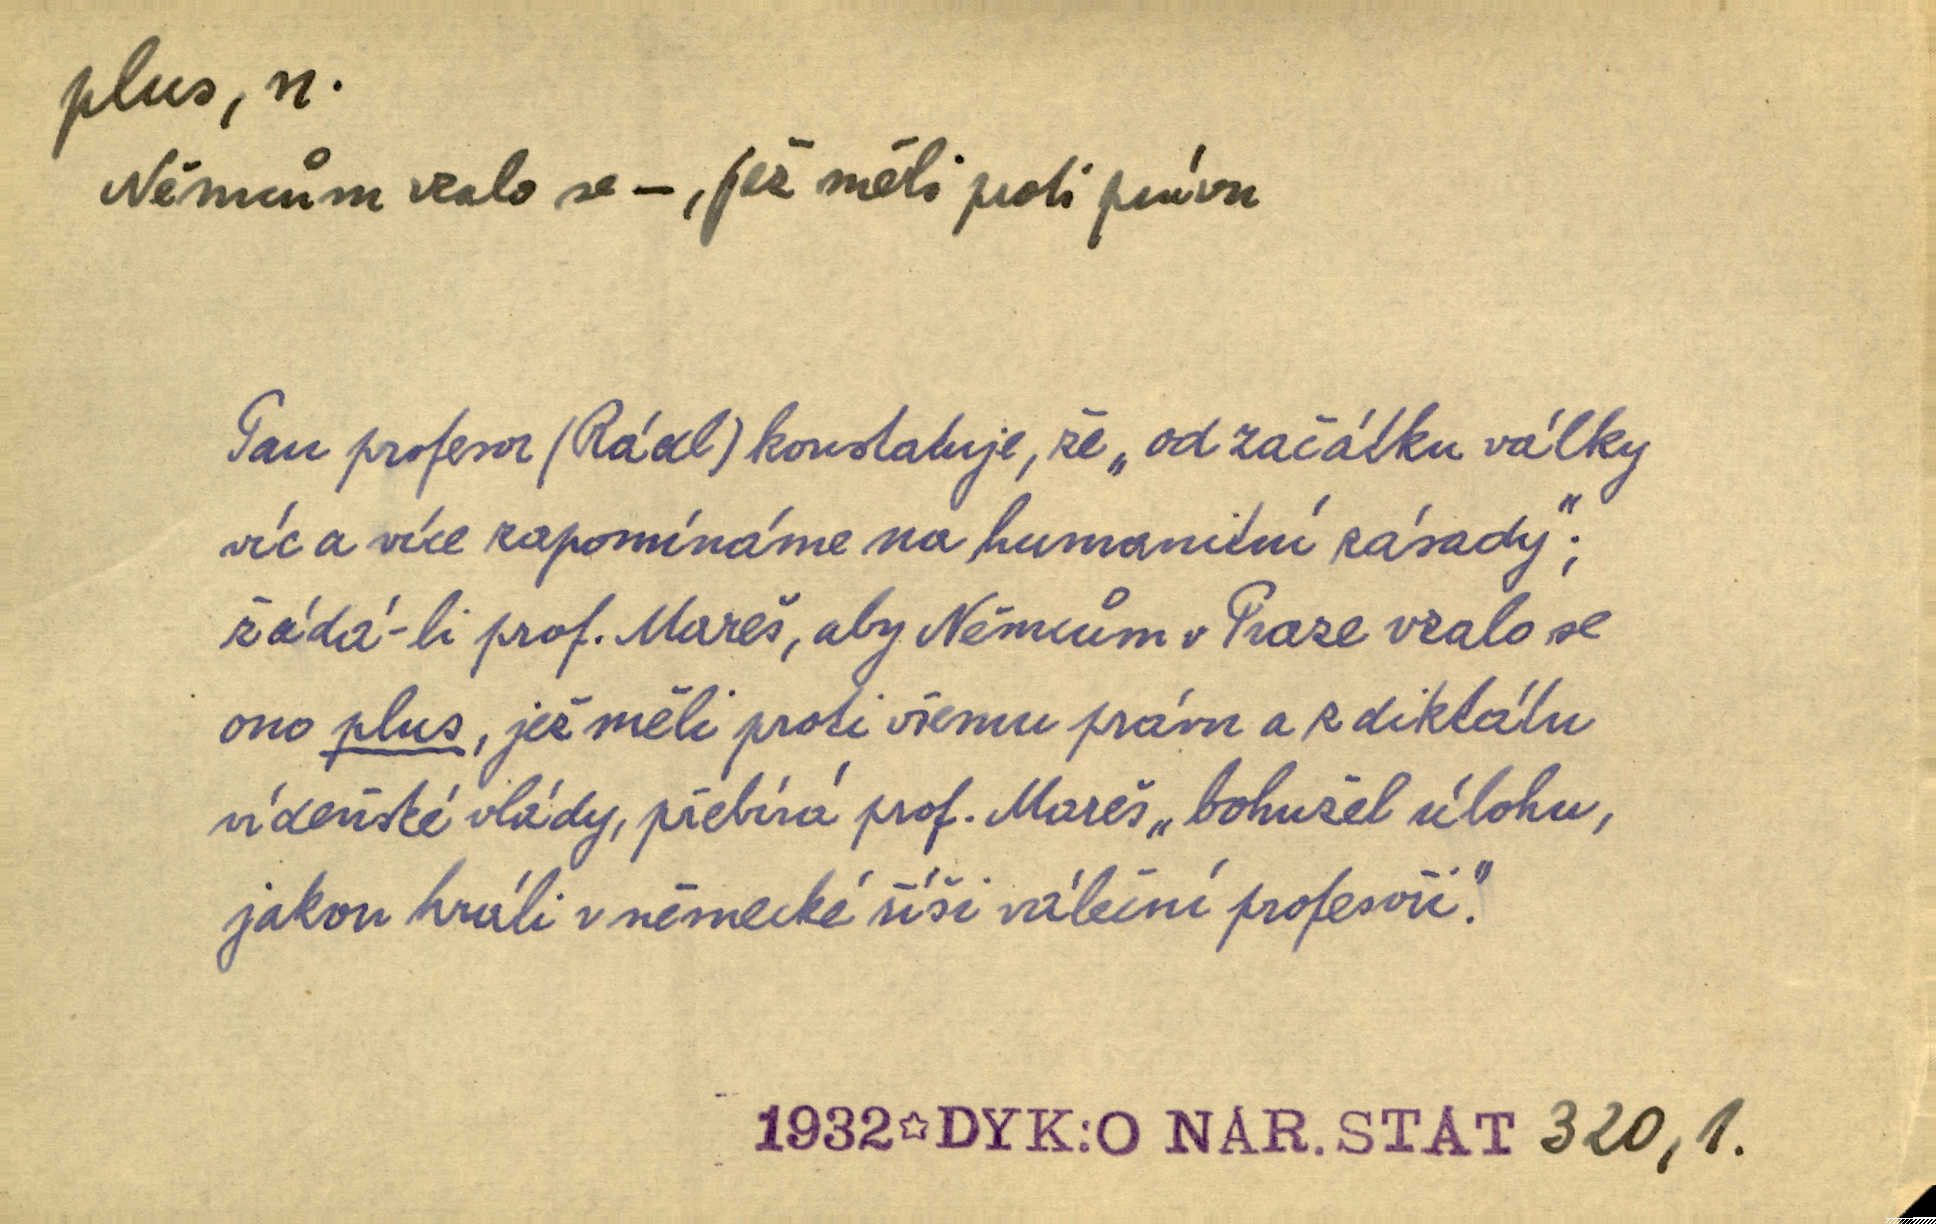 plus, n.
Němcům vzalo se –, jež měli proti právu
Pan profesor (Rádl) konstatuje, že „od začátku války
víc a více zapomínáme na humanitní zásady";
žádá-li prof. Mareš, aby Němcům v Praze vzalo se
ono plus, jež měli proti všemu právu a z diktátu
vídeňské vlády, přebírá prof. Mareš „bohužel úlohu,
jakou hráli v německé říši váleční profesoři."
1932☆DYK:O NAR. STAT 320, 1.